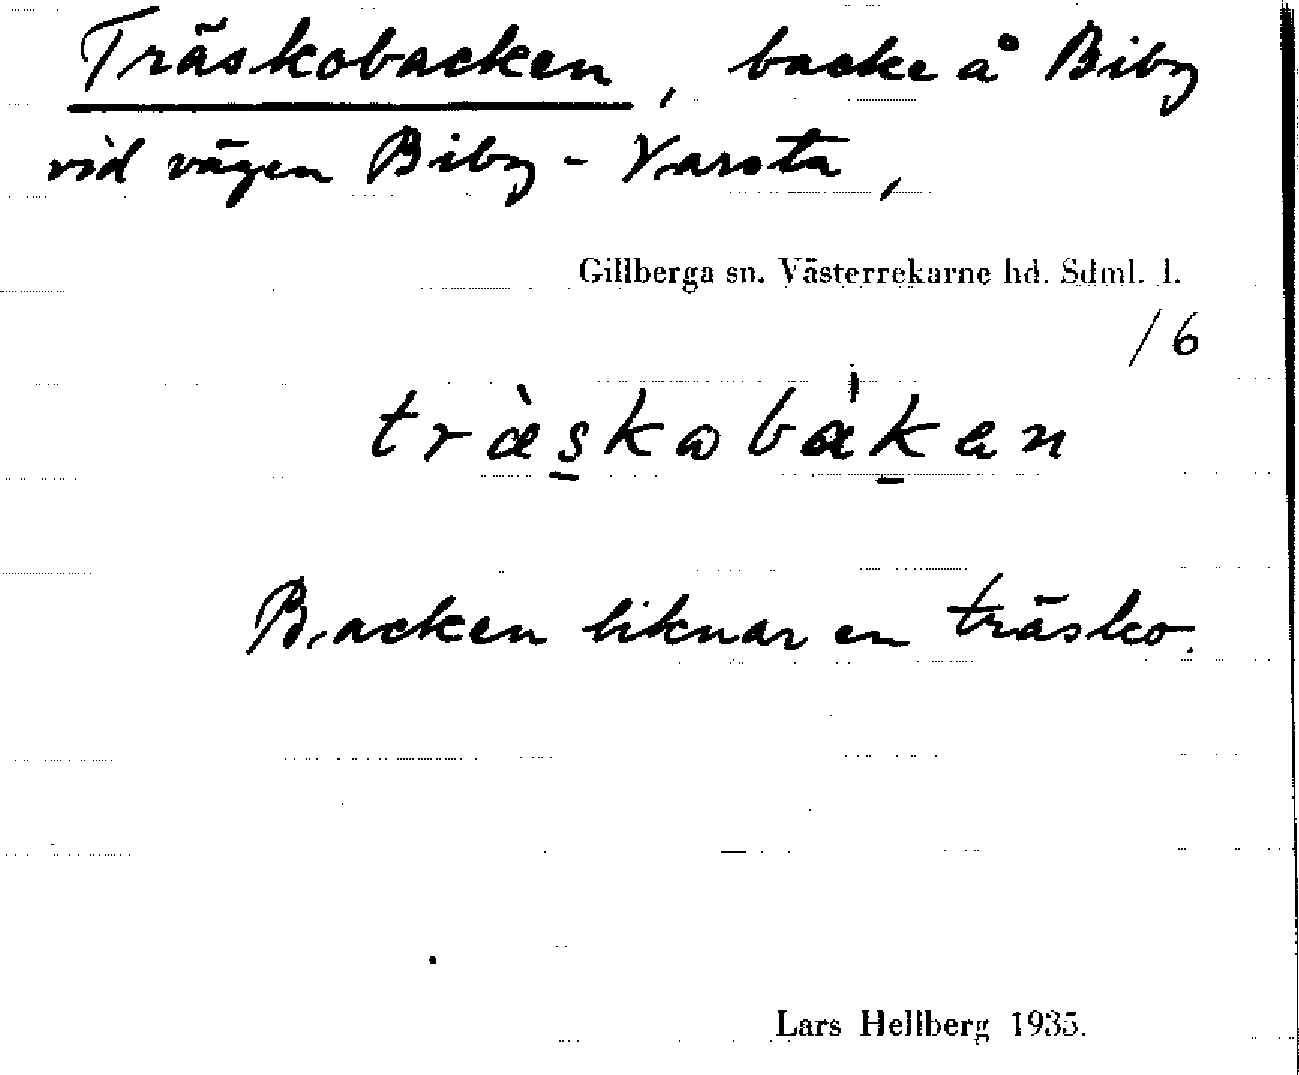 Träskobacken, backe å Biby
vid vägen Biby - Varsta,
Gillberga sn. Västerrekarne hd. Sdml. l.
/6
træ̀skobákan
Backen liknar en träsko.
Lars Hellberg 1935.